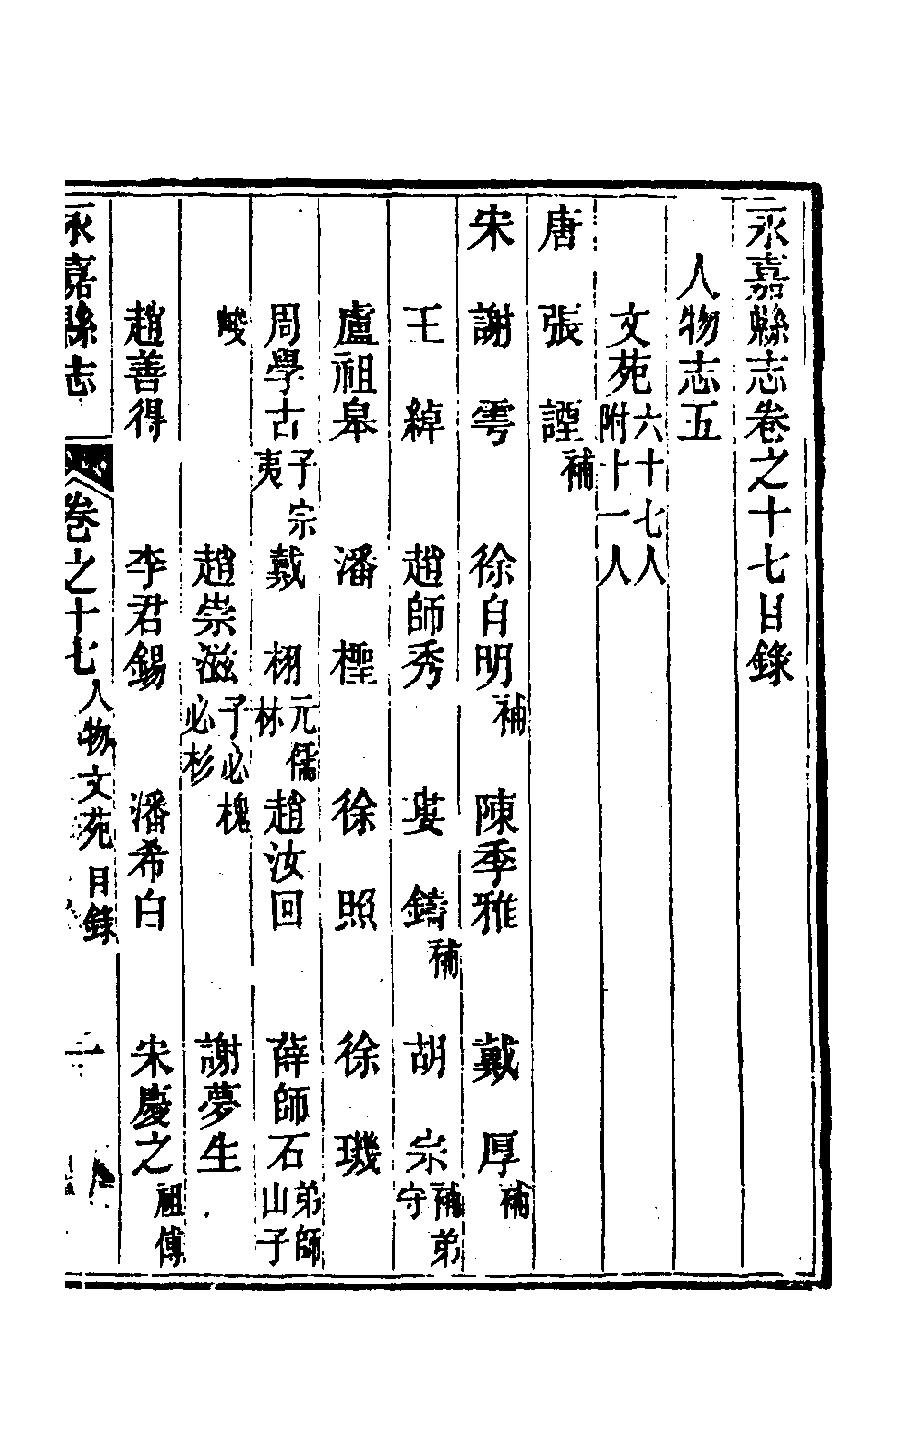 永嘉縣志卷之十七目錄
人物志五
文苑六十七人附十一人
唐 張諲補
宋 謝雩 徐自明補 陳季雅 戴厚補
王綽 趙師秀 娄鑄補 胡宗補弟守
盧祖皋 潘檉 徐照 徐璣
周學古子宗夷 戴栩 元儒林 趙汝回 薛師石弟師山子
峻 趙崇滋子必槐必杉 謝夢生
趙善得 李君錫 潘希白 宋慶之祖傅
永嘉縣志 卷之十七 人物文苑目錄 一